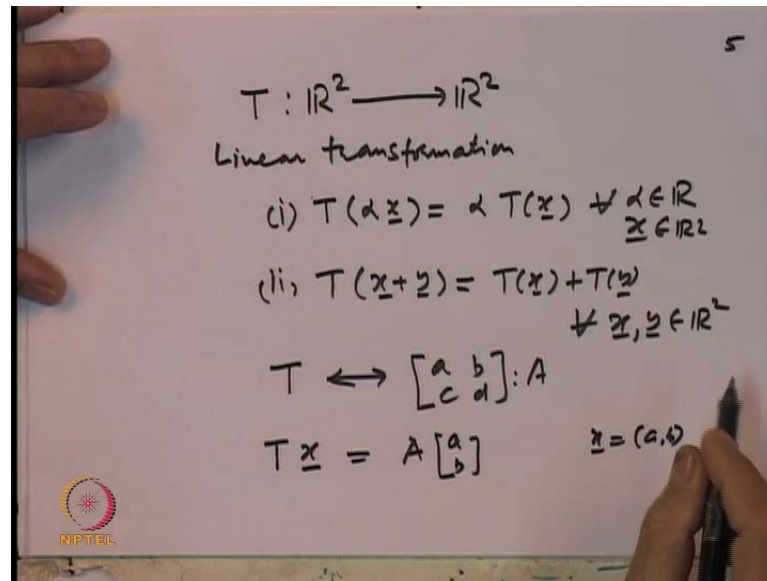 5
T : ℝ² ⟶ ℝ²
Linear transformation
(i) T(αx̲) = α T(x̲) ∀ α ∈ ℝ
x̲ ∈ ℝ²
(ii) T(x̲+y̲) = T(x̲)+T(y̲)
∀ x̲, y̲ ∈ ℝ²
T ⟷ [a b; c d] : A
T x̲ = A [a; b] x̲ = (a,b)
NPTEL